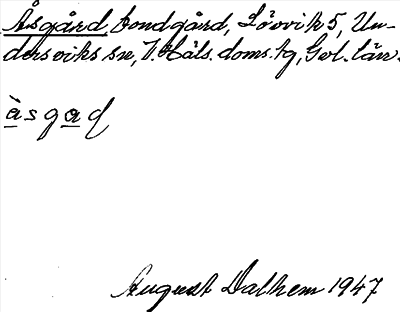 Åsgård, bondgård, Lövvik 5, Un-
dersviks sn, V. Häls. doms. hg, Gvl. län.
àsgaḍ
August Dalhem 1947